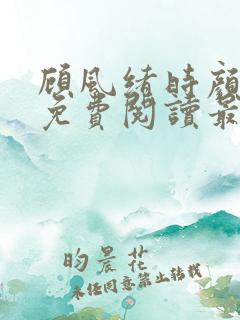 顾风绪时颜
免費閱讀最
昀晨花
未经同意禁止转载